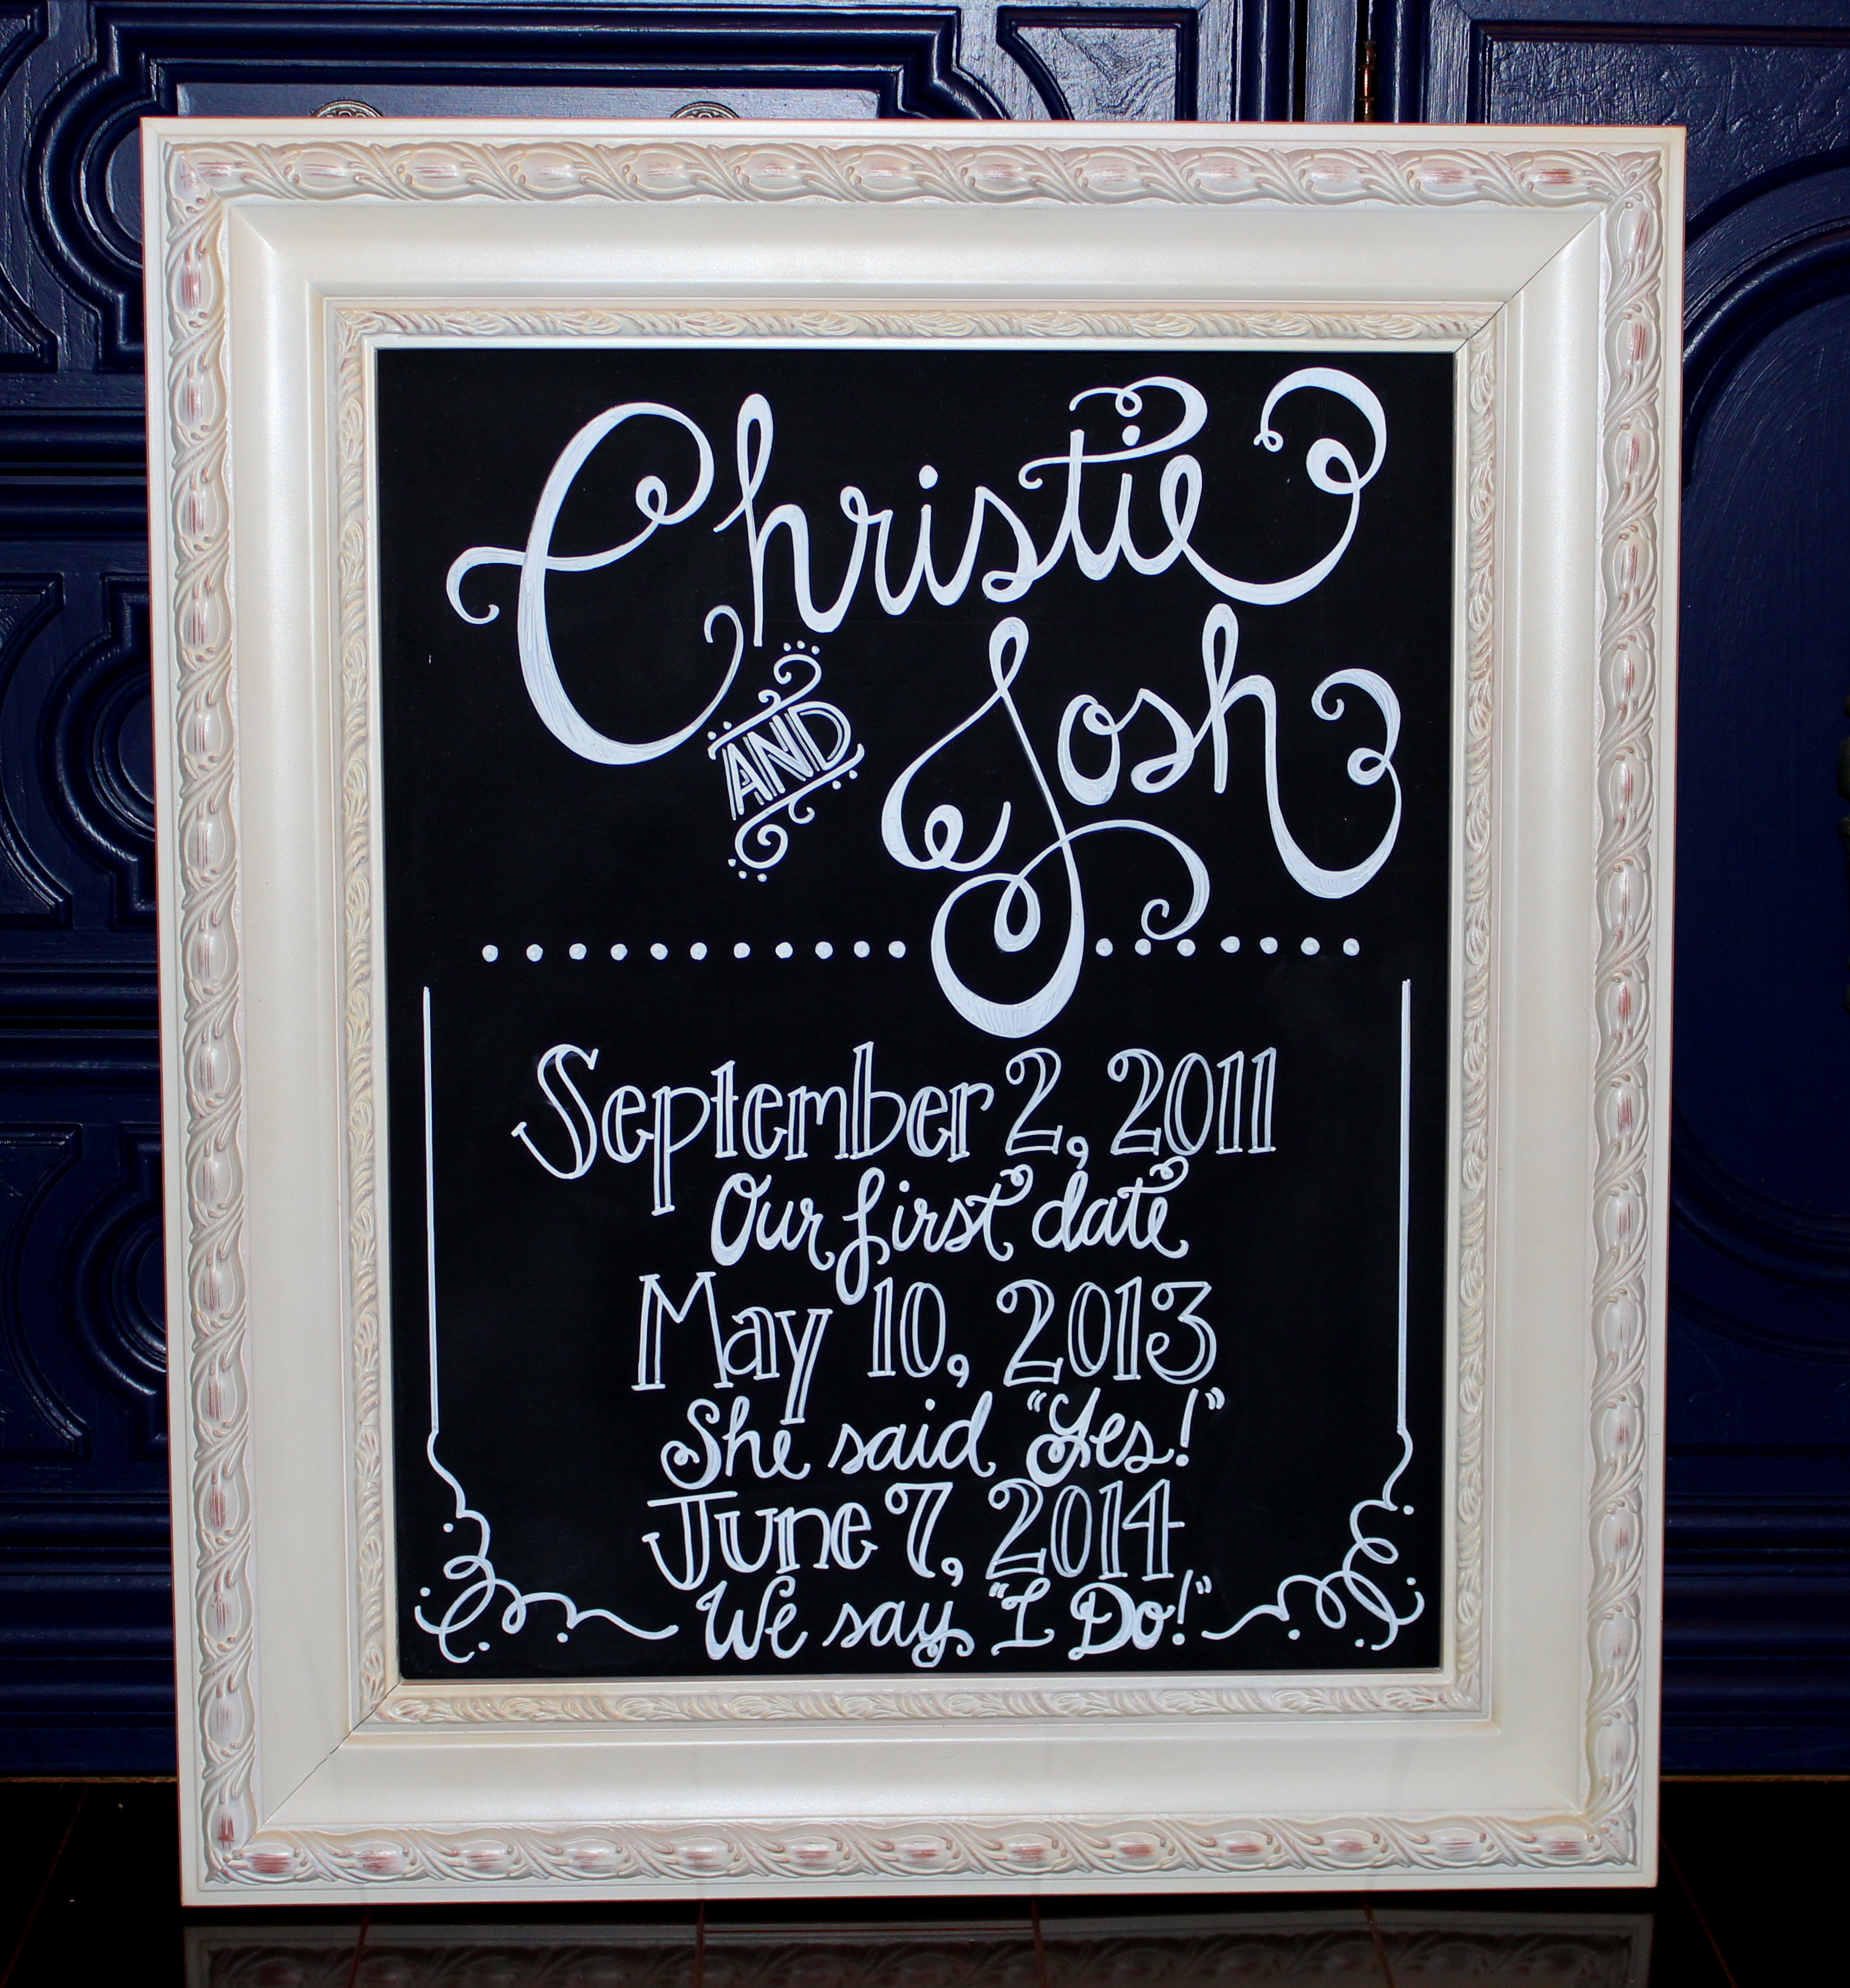 Christie
AND
Josh
September 2, 2011
Our first date
May 10, 2013
She said "Yes!"
June 7, 2014
We say "I Do!"